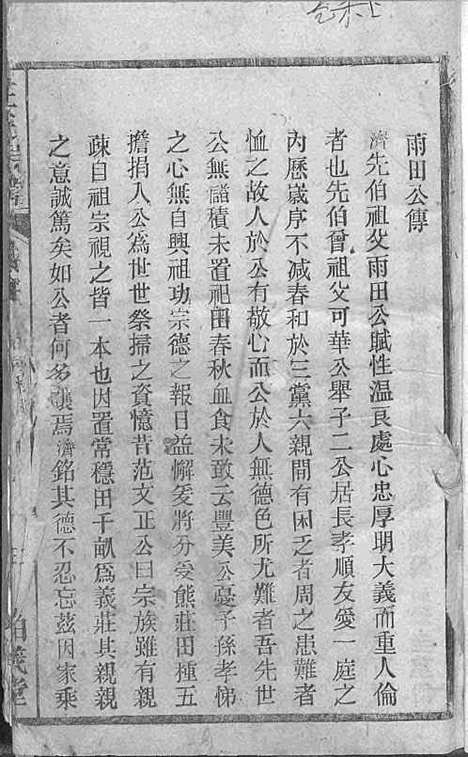 雨田公傳
濟先伯祖父雨田公賦性温良處心忠厚明大義而重人倫
者也先伯曾祖父可華公舉子二公居長孝順友愛一庭之
內歷歲序不減春和於三黨六親間有困乏者周之患難者
恤之故人於公有敬心而公於人無德色所尤難者吾先世
公無諸積未置祀田春秋血食未敢云豐美公憂子孫孝悌
之心無自興祖功宗德之報日益懈爰將分受熊莊田種五
擔捐入公為世世祭掃之資憶昔范文正公曰宗族雖有親
疎自祖宗視之皆一本也因置常穩田千畝爲義莊其親親
之意誠篤矣如公者何多讓焉濟銘其德不忍忘茲因家乘